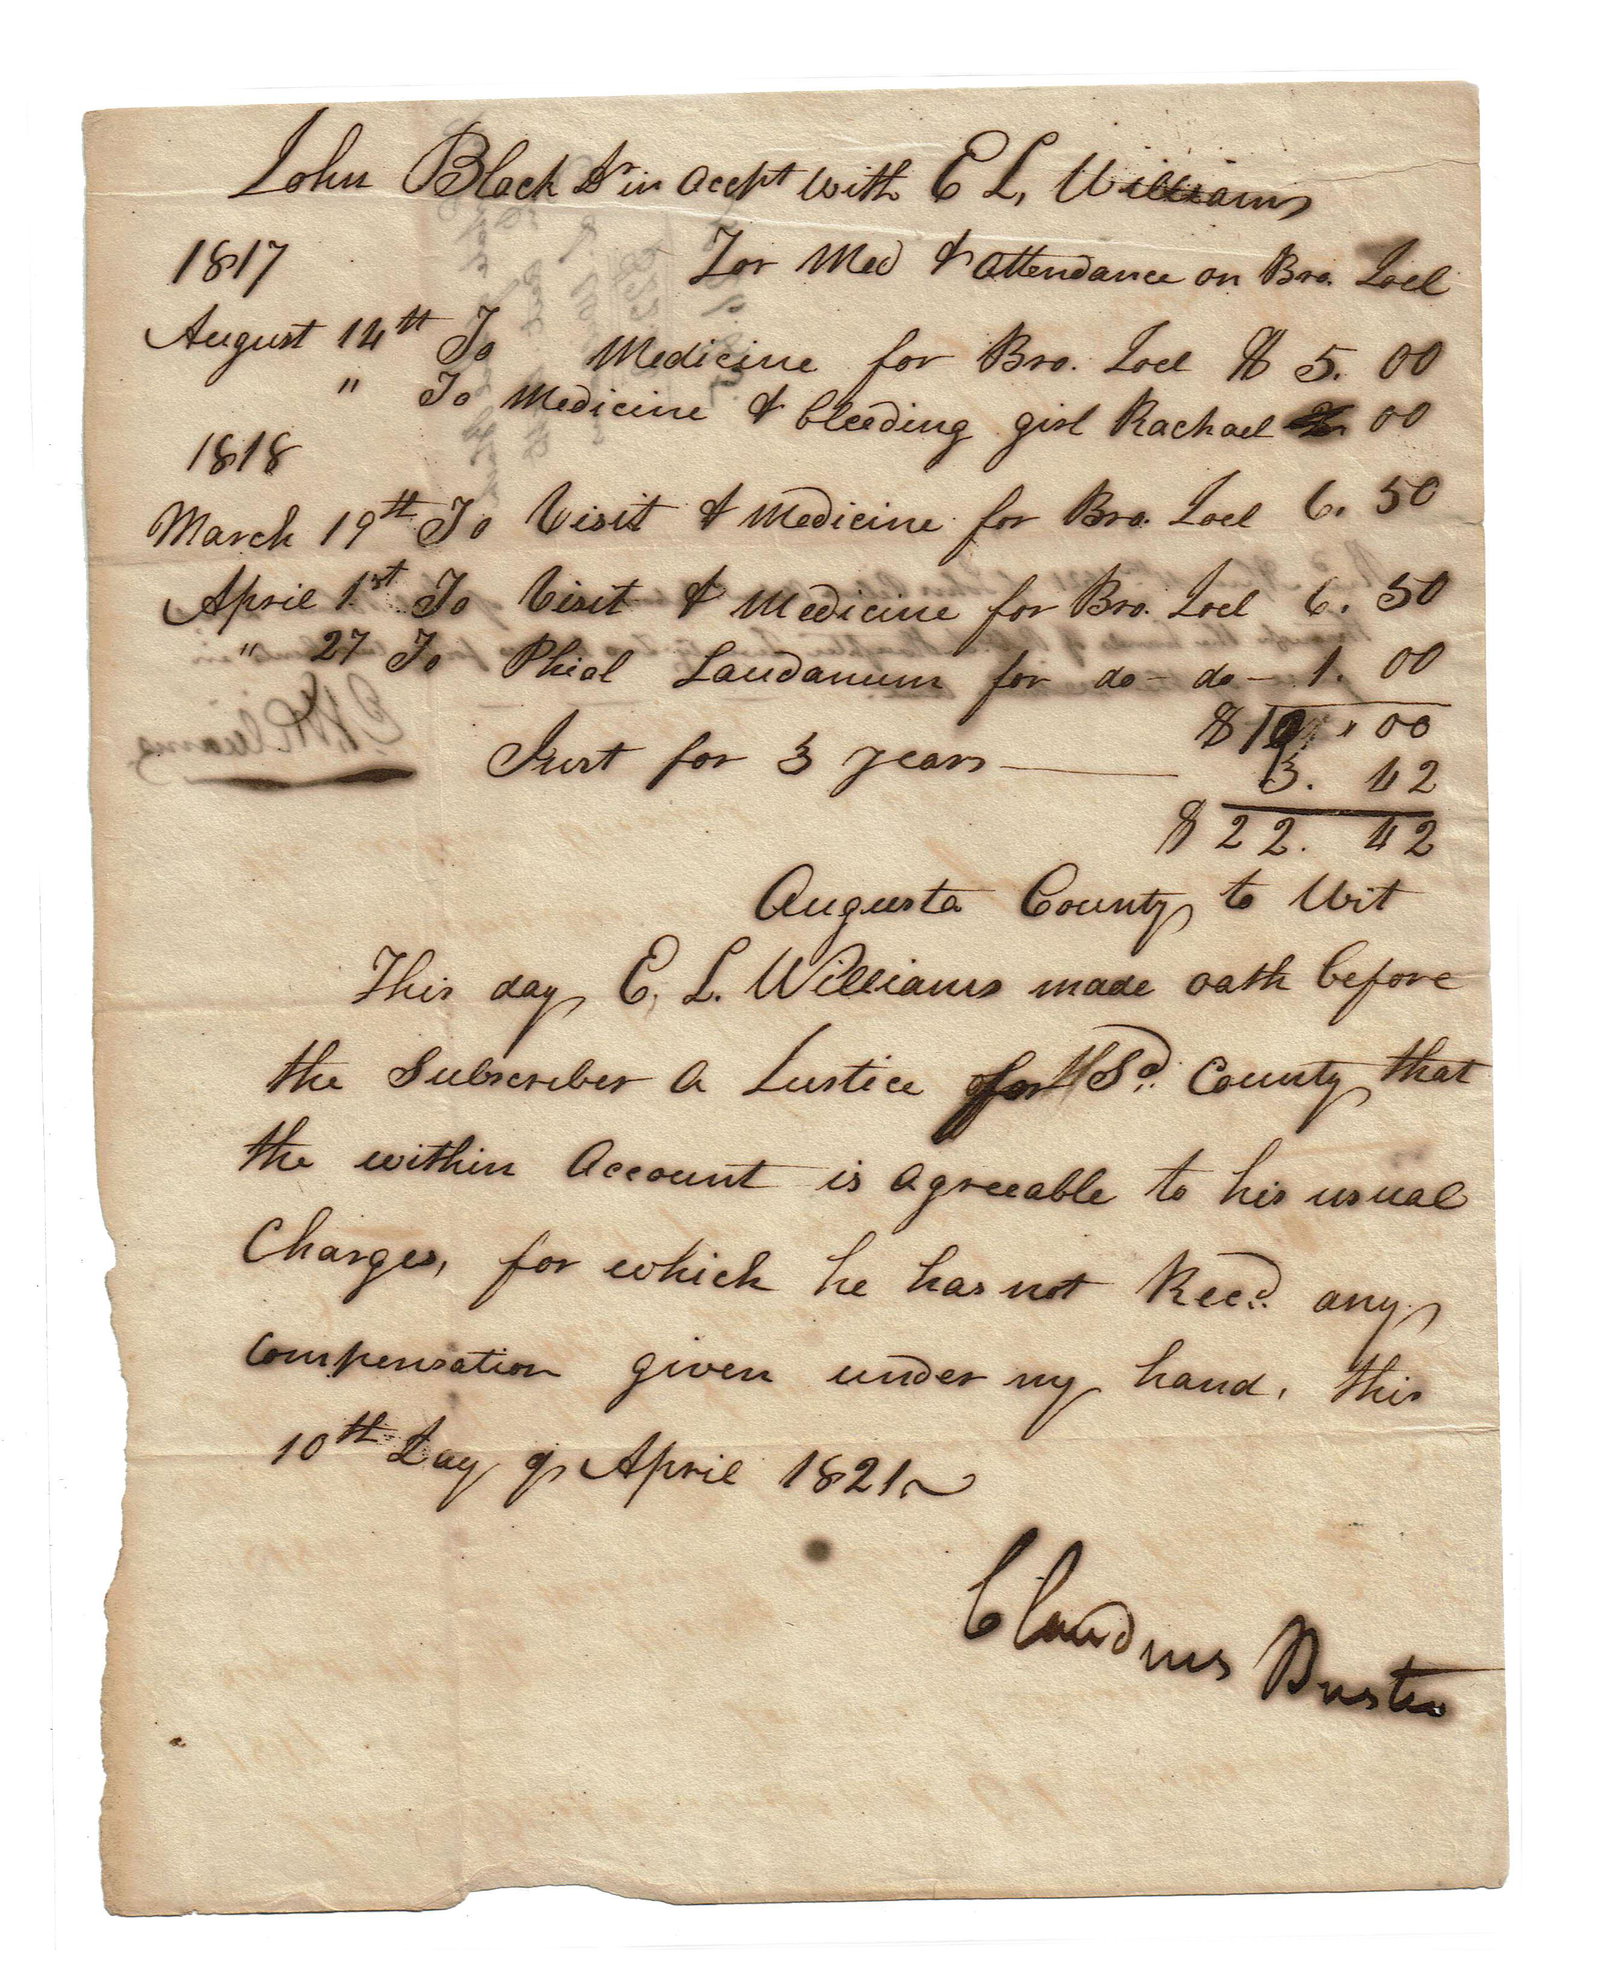 John Black Dr in acckt with E L, Williams
1817 For Med & attendance on Bro. Joel
August 14th To Medicine for Bro. Joel $ 5. 00
" To Medicine & bleeding girl Rachael 00
1818
March 19th To Visit & Medicine for Bro. Joel 6. 50
April 1st To Visit & Medicine for Bro. Joel 6. 50
" 27 To Phial Laudanum for do - do - 1. 00
$ 19. 00
Inrt for 3 years 3. 42
$ 22. 42
Augusta County to Wit
This day E. L. Williams made oath before
the Subscriber a Justice for Sd. County that
the within account is agreeable to his usual
Charges, for which he has not Recd. any
compensation given under my hand, this
10th Day of April 1821
Claudius Buster
E L Williams